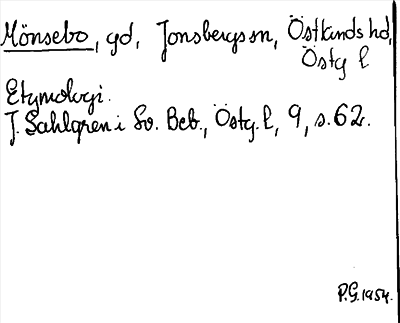 Mönsebo, gd, Jonsbergs sn, Östkinds hd,
Östg l
Etymologi.
J. Sahlgren i Sv. Beb., Östg. l, 9, s. 62.
P.G. 1954.